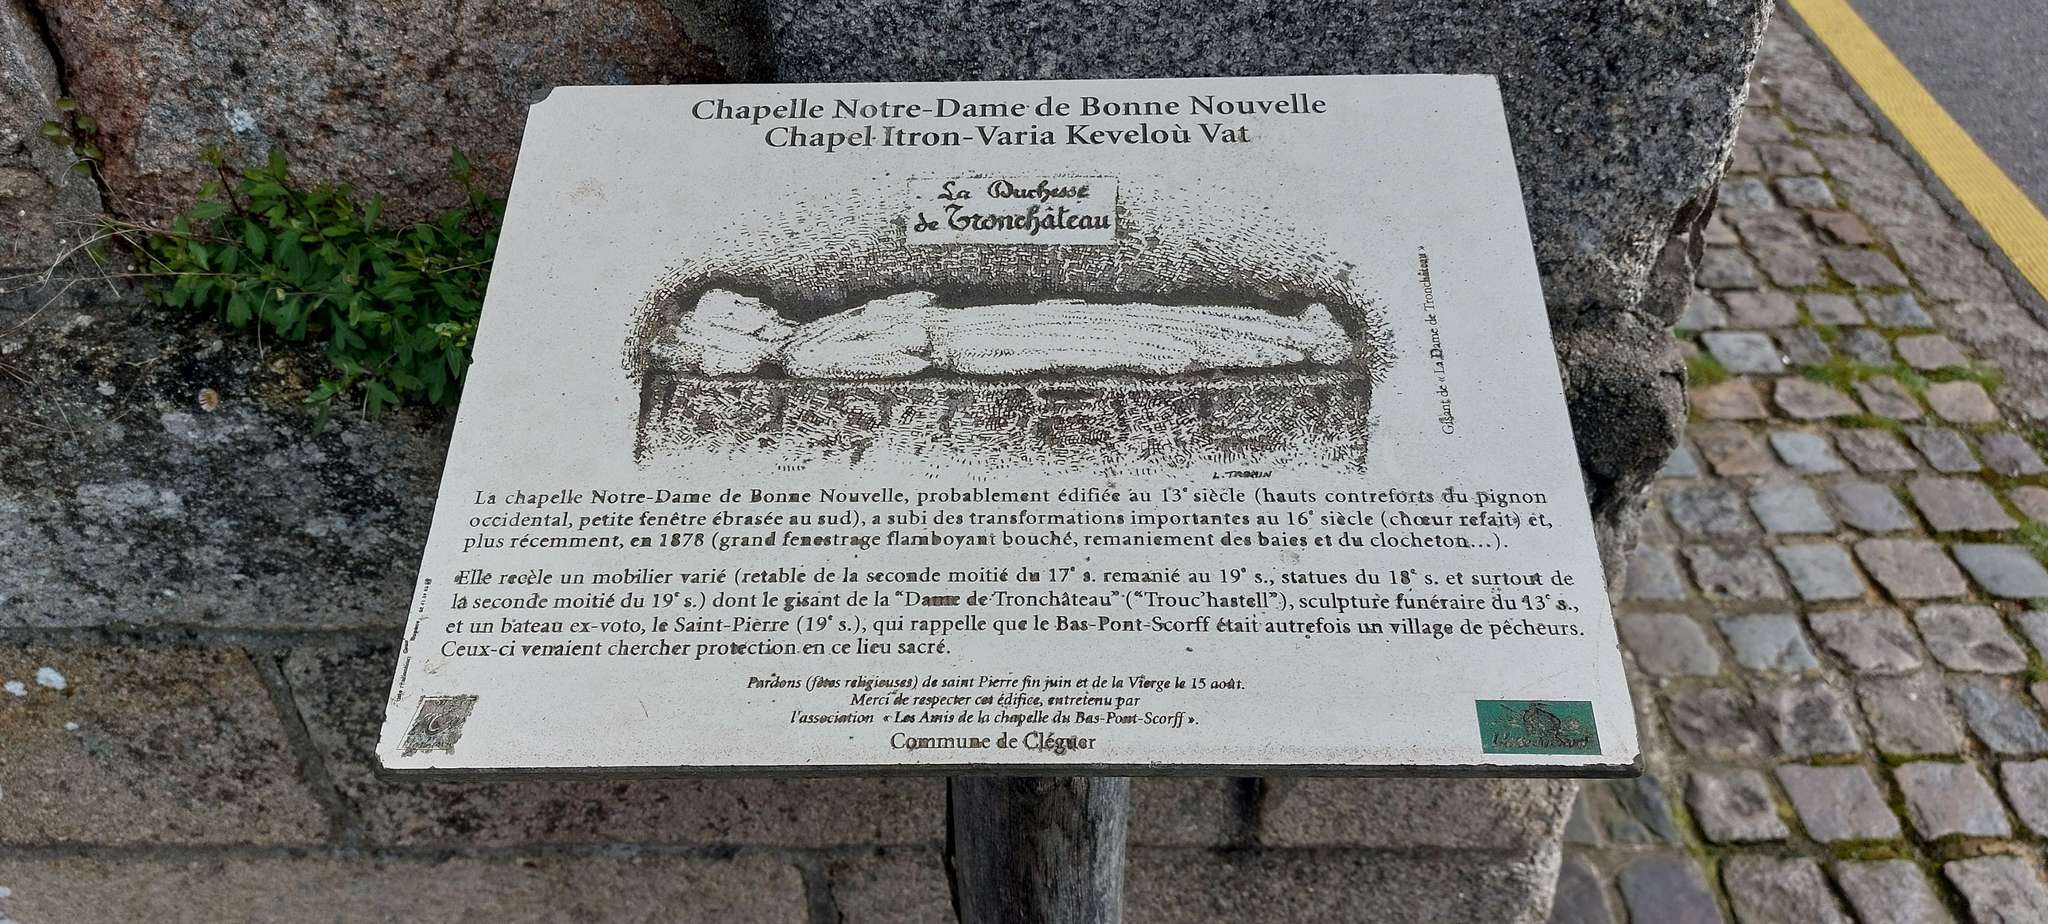 Chapelle Notre-Dame de Bonne Nouvelle
Chapel Itron-Varia Keveloù Vat
La Duchesse
de Tronchâteau
Gisant de « La Dame de Tronchâteau »
La chapelle Notre-Dame de Bonne Nouvelle, probablement édifiée au 13e siècle (hauts contreforts du pignon
occidental, petite fenêtre ébrasée au sud), a subi des transformations importantes au 16e siècle (chœur refait) et,
plus récemment, en 1878 (grand fenestrage flamboyant bouché, remaniement des baies et du clocheton...).
Elle recèle un mobilier varié (retable de la seconde moitié du 17e s. remanié au 19e s., statues du 18e s. et surtout de
la seconde moitié du 19e s.) dont le gisant de la "Dame de Tronchâteau" ("Trouc'hastell"), sculpture funéraire du 13e s.,
et un bateau ex-voto, le Saint-Pierre (19e s.), qui rappelle que le Bas-Pont-Scorff était autrefois un village de pêcheurs.
Ceux-ci venaient chercher protection en ce lieu sacré.
Pardons (fêtes religieuses) de saint Pierre fin juin et de la Vierge le 15 août.
Merci de respecter cet édifice, entretenu par
l'association « Les Amis de la chapelle du Bas-Pont-Scorff ».
Commune de Cléguer